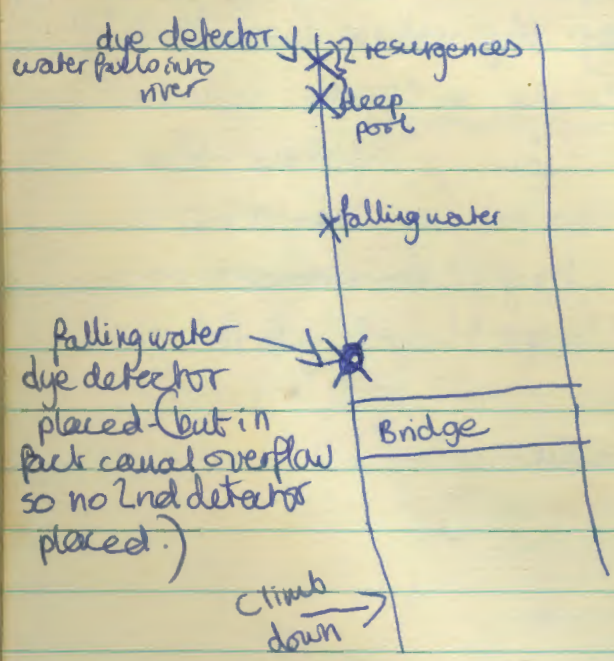 dye detector
water falls into
river
2 resurgences
deep
pool
falling water
falling water
dye detector
placed - (but in
fact canal overflow
so no 2nd detector
placed.)
Bridge
Climb
down